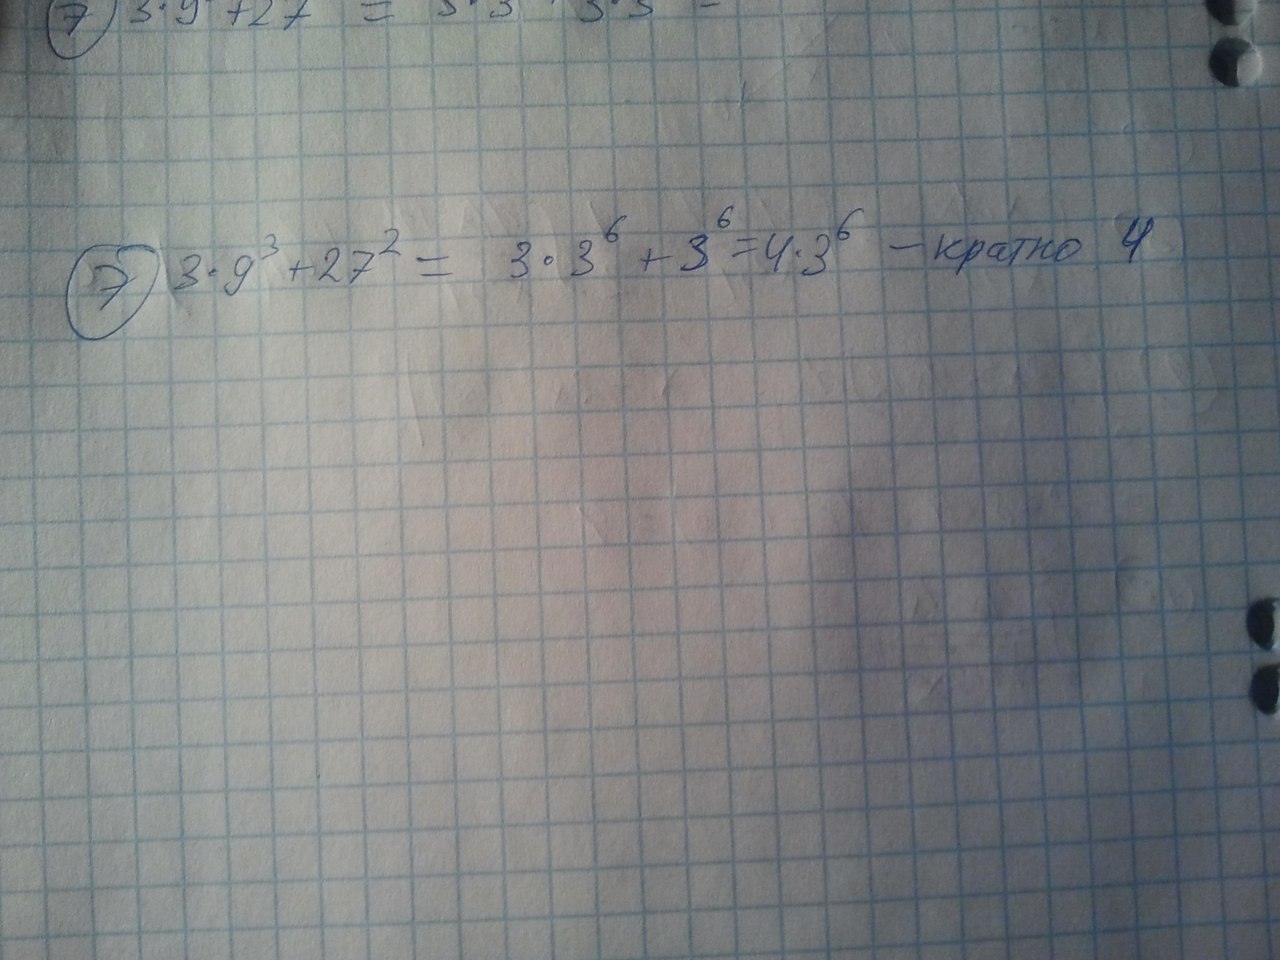 ⑦ 3·9 +27 = 3·3
⑦ 3·9³ + 27² = 3·3⁶ + 3⁶ = 4·3⁶ – кратно 4